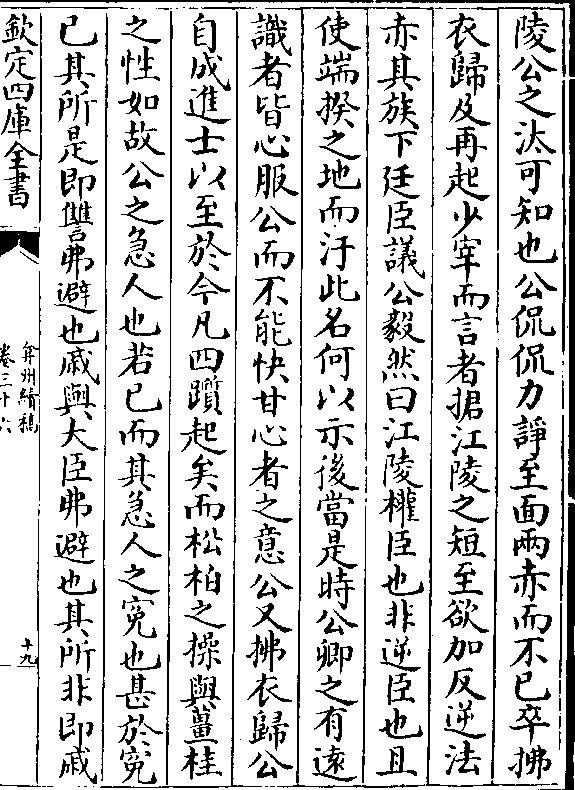 陵公之汰可知也公侃侃力諍至面兩赤而不已卒拂
衣歸及再起少宰而言者捃江陵之短至欲加反逆法
赤其族下廷臣議公毅然曰江陵權臣也非逆臣也且
使端揆之地而汙此名何以示後當是時公卿之有遠
識者皆心服公而不能快甘心者之意公又拂衣歸公
自成進士以至於今凡四躓起矣而松柏之操與薑桂
之性如故公之急人也若已而其急人之寃也甚於寃
已其所是即讐弗避也戚與大臣弗避也其所非即戚
欽定四庫全書
弇州續稿
卷三十六
十九